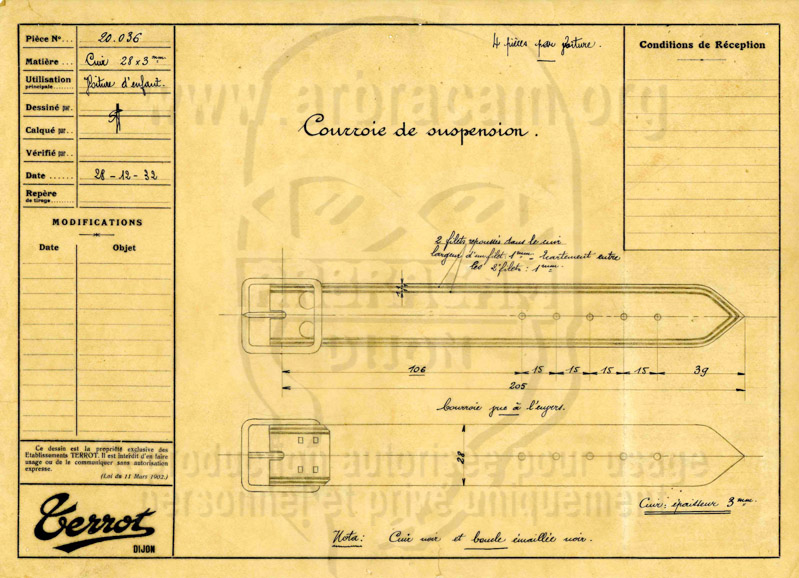 Pièce No... 20.036
Matière... Cuir 28 x 3 mm.
Utilisation principale... Voiture d'enfant.
Dessiné par.
Calqué par..
Vérifié par..
Date ...... 28-12-32
Repère de tirage.
MODIFICATIONS
Date Objet
Ce dessin est la propriété exclusive des
Etablissements TERROT. Il est interdit d'en faire
usage ou de le communiquer sans autorisation
expresse.
(Loi du 11 Mars 1902.)
Terrot
DIJON
4 pièces pour voiture.
Conditions de Réception
Courroie de suspension.
2 filets repoussés dans le cuir
largeur d'un filet 1 mm - Ecartement entre
les 2 filets : 1 mm.
106
15
15
15
15
39
205
Courroie vue à l'envers.
28
Cuir : épaisseur 3 mm.
Nota : Cuir noir et boucle émaillée noir.
www.arbracam.org
ARBRACAM
DIJON
Reproduction autorisée pour usage
personnel et privé uniquement